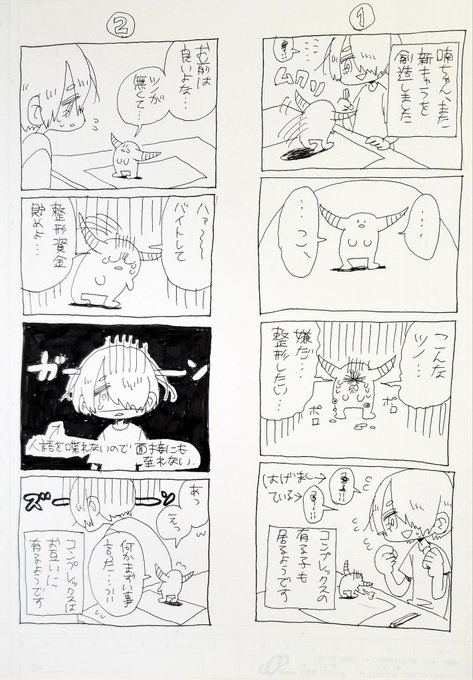 ①
喃ちゃん、また
新キャラを
創造しました
ムクッ
…
…
…こ、
こんな
ツノ…
嫌だ…
整形したい…
ポロ
ポロ
はげまし→
ている→
コンプレックスの
有る子も
居るようです
②
お前は
良いよな…
ツノが
無くて…
ハァ〜〜
バイトして
整形資金
貯めよ…
ガーーン
人語を喋れないので面接にも
行れない.
あっ
えっ
何かまずい事
言った…?!
ズーーーン
コンプレックスは
お互いに
有るようです